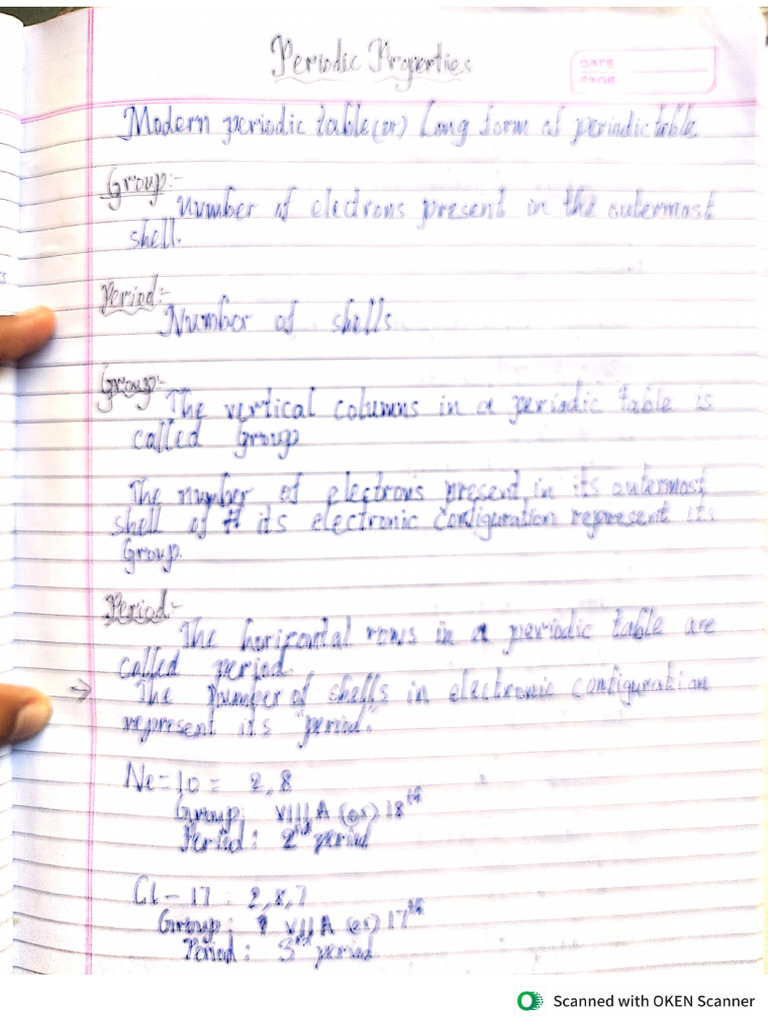 Periodic Properties
DATE
PAGE
Modern periodic table (or) Long form of periodic table
Group:-
Number of electrons present in the outermost
shell.
Period:-
Number of shells
Group:-
The vertical columns in a periodic table is
called Group
The number of electrons present in its outermost
shell of its electronic configuration represent its
Group.
Period:-
The horizontal rows in a periodic table are
called period.
→ The number of shells in electronic configuration
represent its "period".
Ne = 10 = 2,8
Group: VIII A (or) 18th
Period: 2nd period
Cl - 17 : 2,8,7
Group: VII A (or) 17th
Period: 3rd period
Scanned with OKEN Scanner